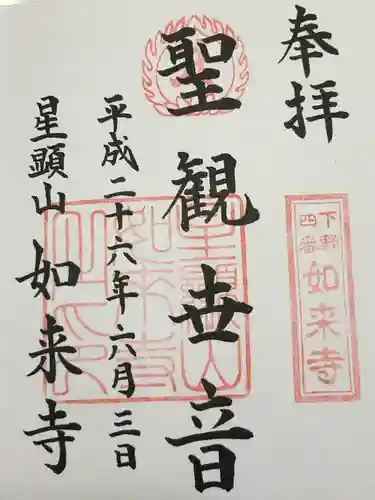 奉拝
下野
四番
如来寺
聖観世音
平成二十六年六月三日
星顕山
如来寺